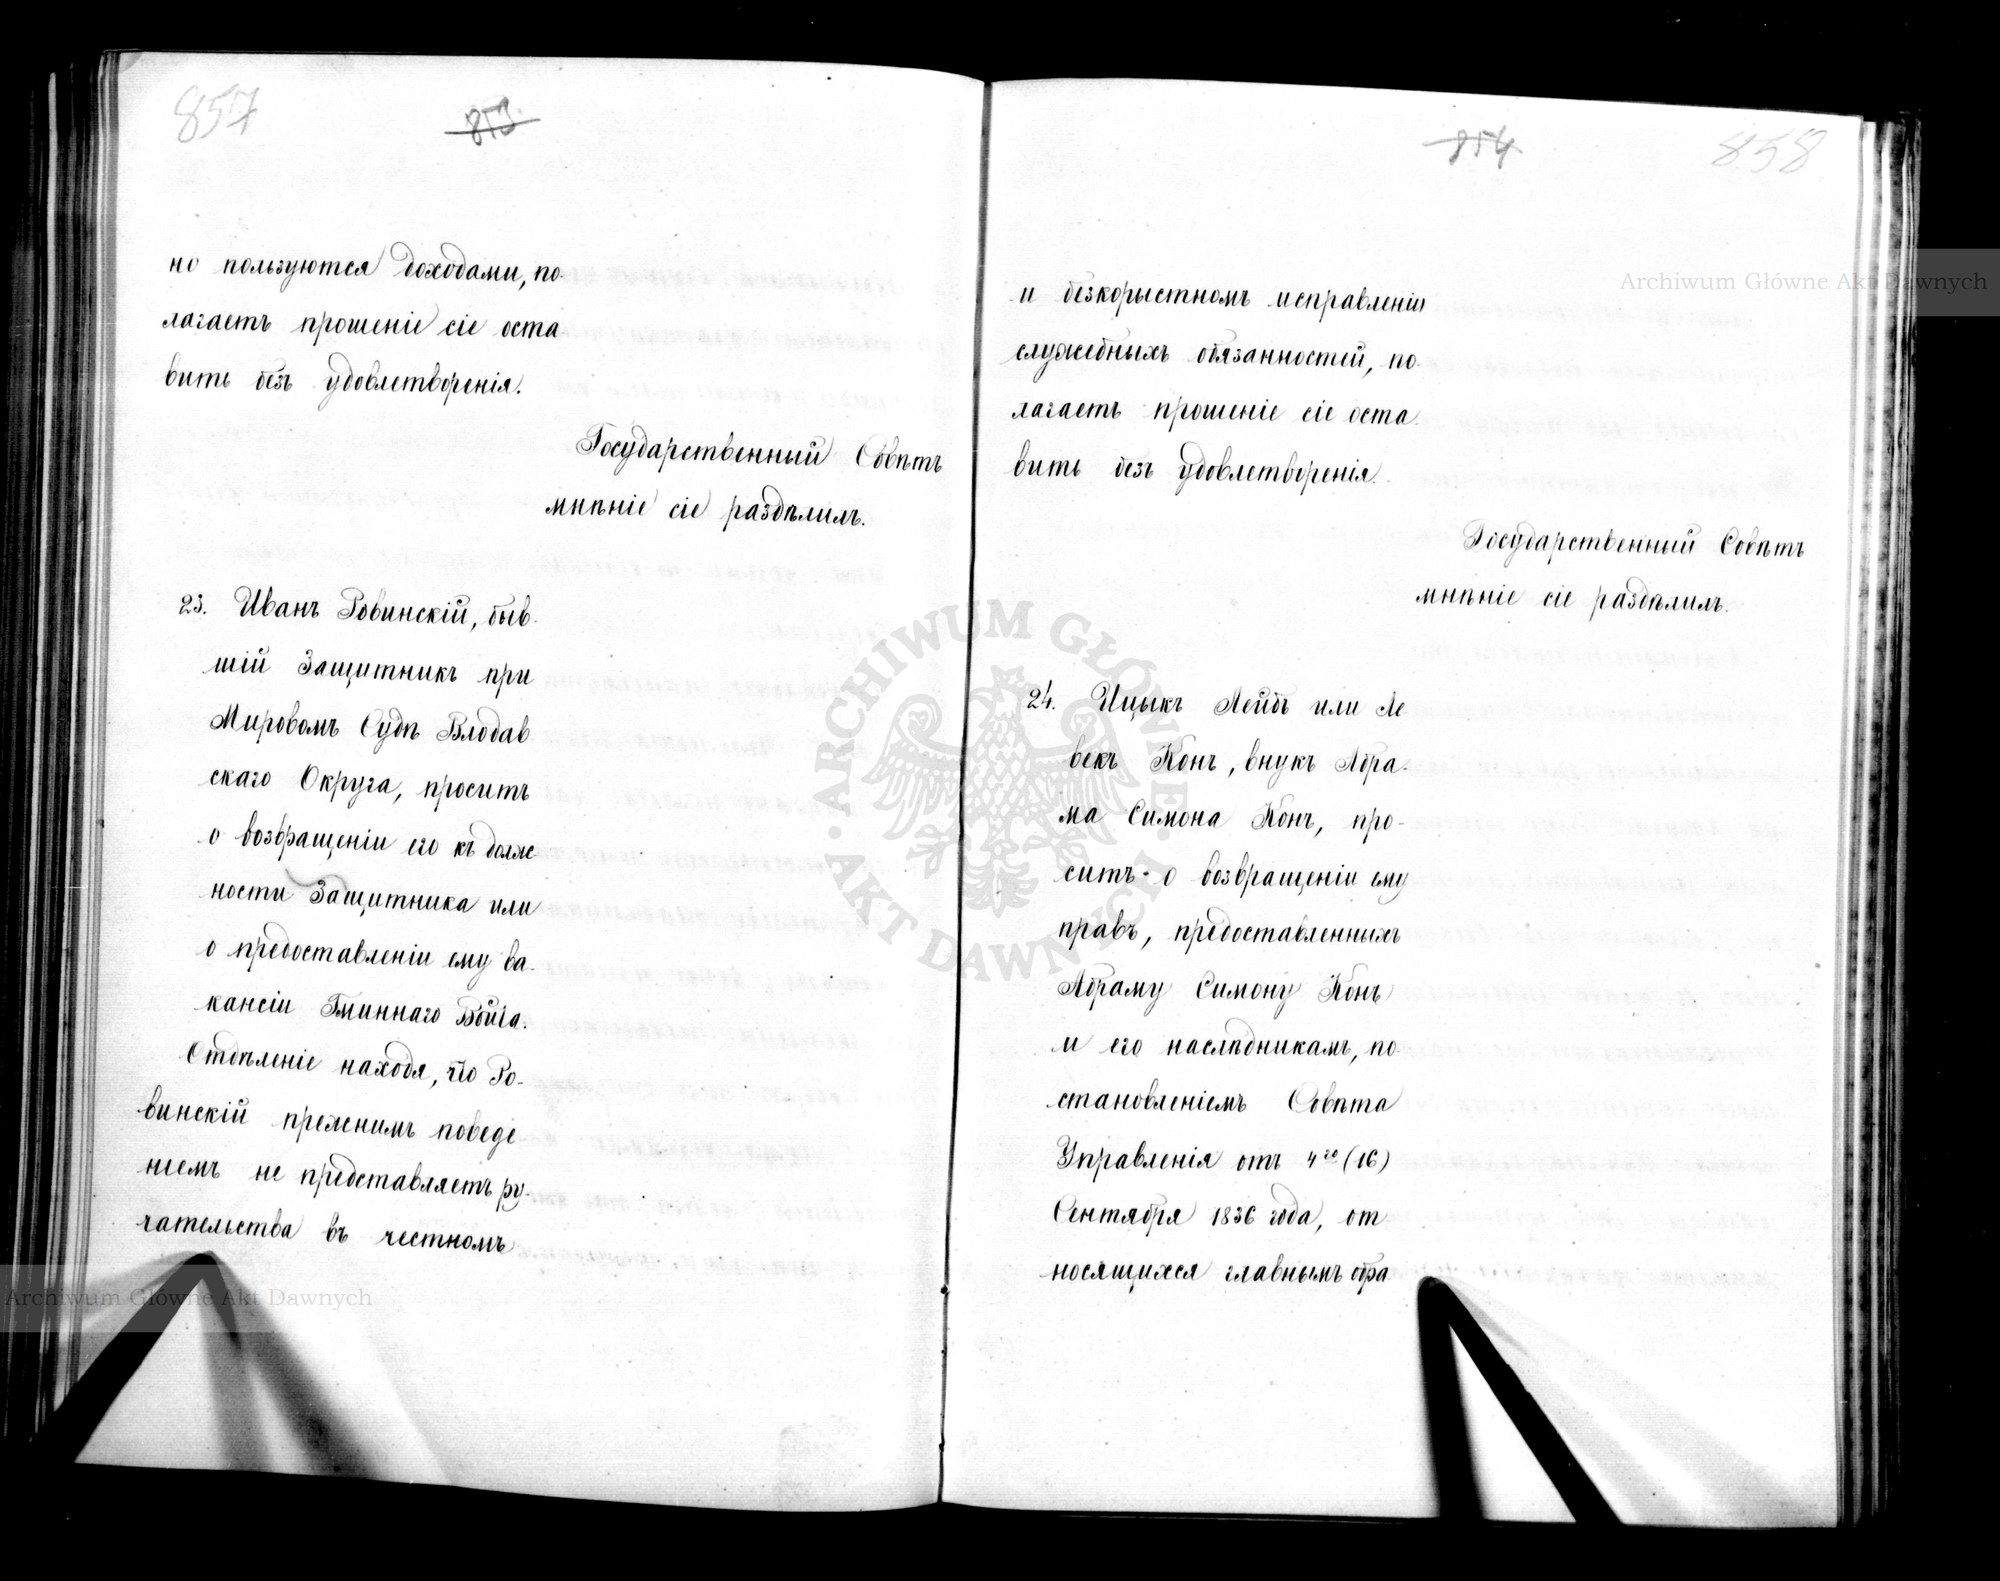 857
853.
но пользуются доходами, по-
лагаетъ прошеніе сіе оста
вить безъ удовлетворенія.
Государственный Совѣтъ
мнѣніе сіе раздѣлилъ.
23. Иванъ Ровинскій, быв-
шій Защитникъ при
Мировомъ Судѣ Влодав
скаго Округа, проситъ
о возвращеніи его къ долж
ности Защитника или
о предоставленіи ему ва-
кансіи Гминнаго Войта.
Отдѣленіе находя, что Ро-
винскій прежнимъ поведе
ніемъ не представляетъ ру-
чательства въ честномъ
854
858
и безкорыстномъ исправленіи
служебныхъ обязанностей, по-
лагаетъ прошеніе сіе оста
вить безъ удовлетворенія.
Государственный Совѣтъ
мнѣніе сіе раздѣлилъ.
24. Ицыкъ Лейбъ или Ле
векъ Конъ, внукъ Абра-
ма Симона Конъ, про-
ситъ о возвращеніи ему
правъ, предоставленныхъ
Абраму Симону Конъ
и его наслѣдникамъ, по-
становленіемъ Совѣта
Управленія отъ 4го (16)
Сентября 1836 года, от
носящихся главнымъ обра
Archiwum Główne Akt Dawnych
Archiwum Główne Akt Dawnych
ARCHIWUM GŁÓWNE AKT DAWNYCH